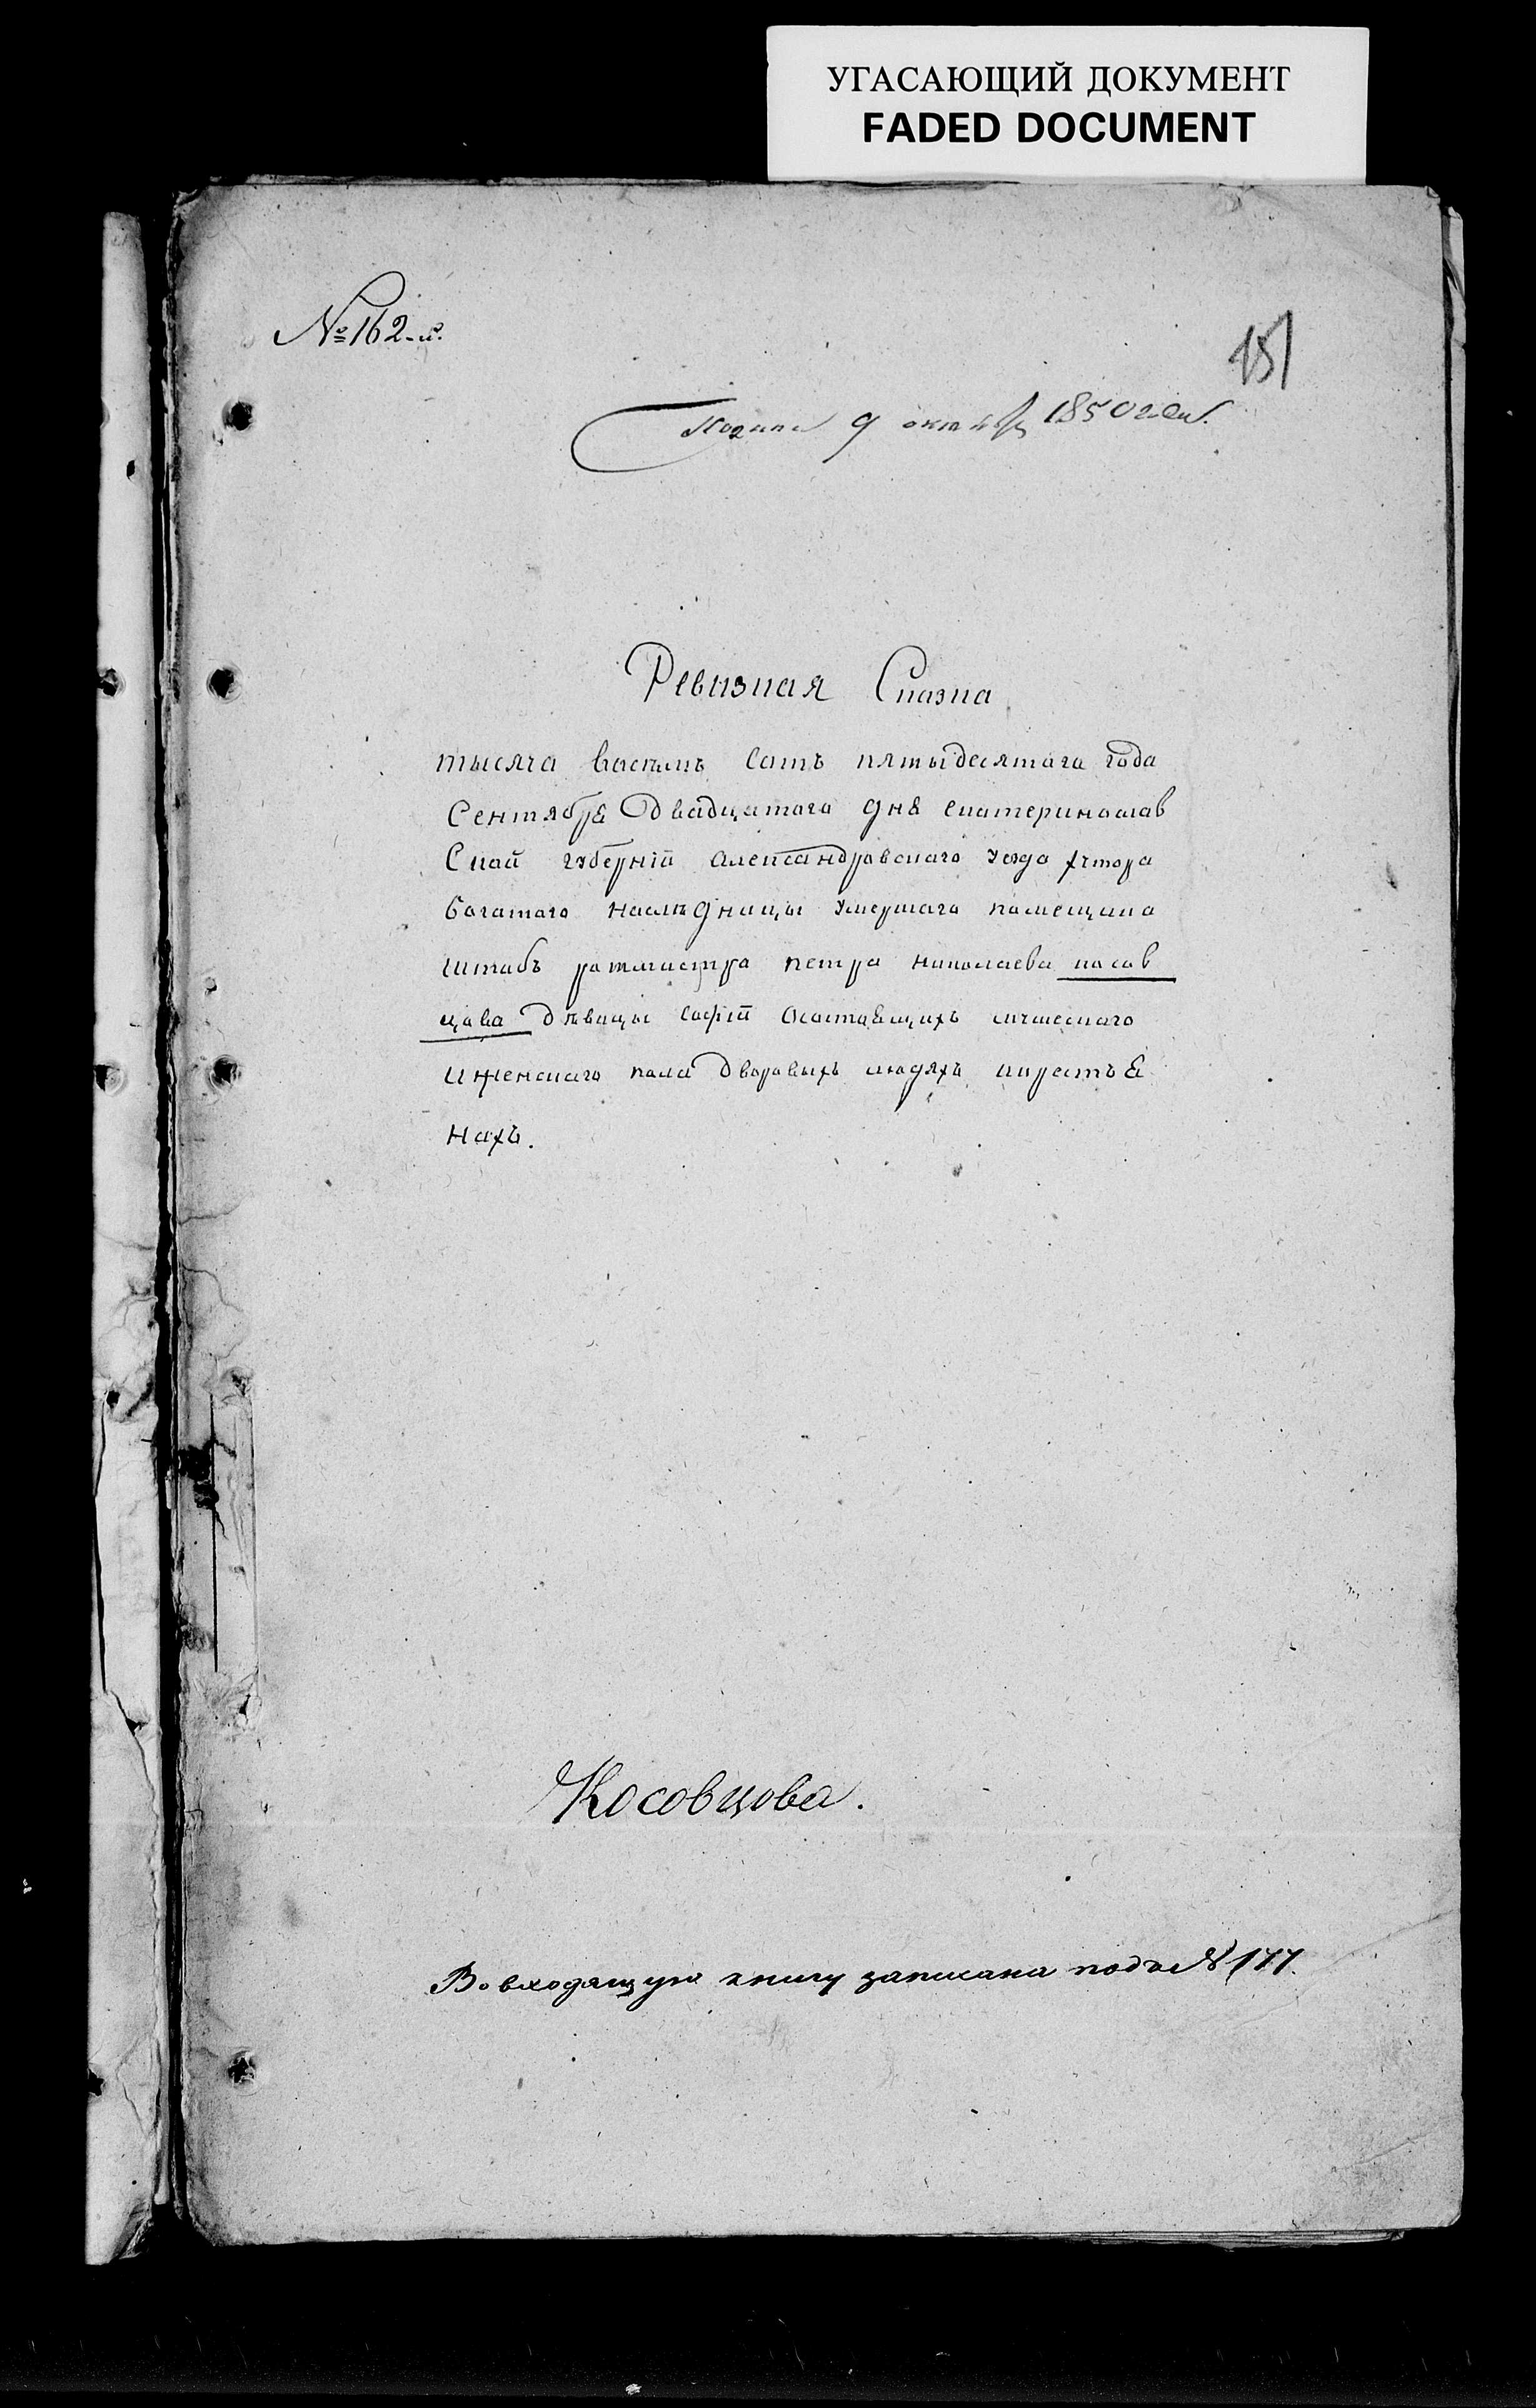 УГАСАЮЩИЙ ДОКУМЕНТ
FADED DOCUMENT
№ 162-й.
151
9 октября 1850 года.
Ревизная Сказка
тысяча восемь сотъ пятыдесятаго года
Сентября двадцатаго дня екатериносlав
Скай губерніи александровскаго уезда хутора
богатаго наслѣдницы умершаго помещика
штабъ ротмистра петра николаева косов
цова дѣвицы софіи Осоставщихъ мужескаго
иженскаго пола дворовыхъ людяхъ икрестья
нахъ.
Косовцова.
Во входящую книгу записана подъ № 177.